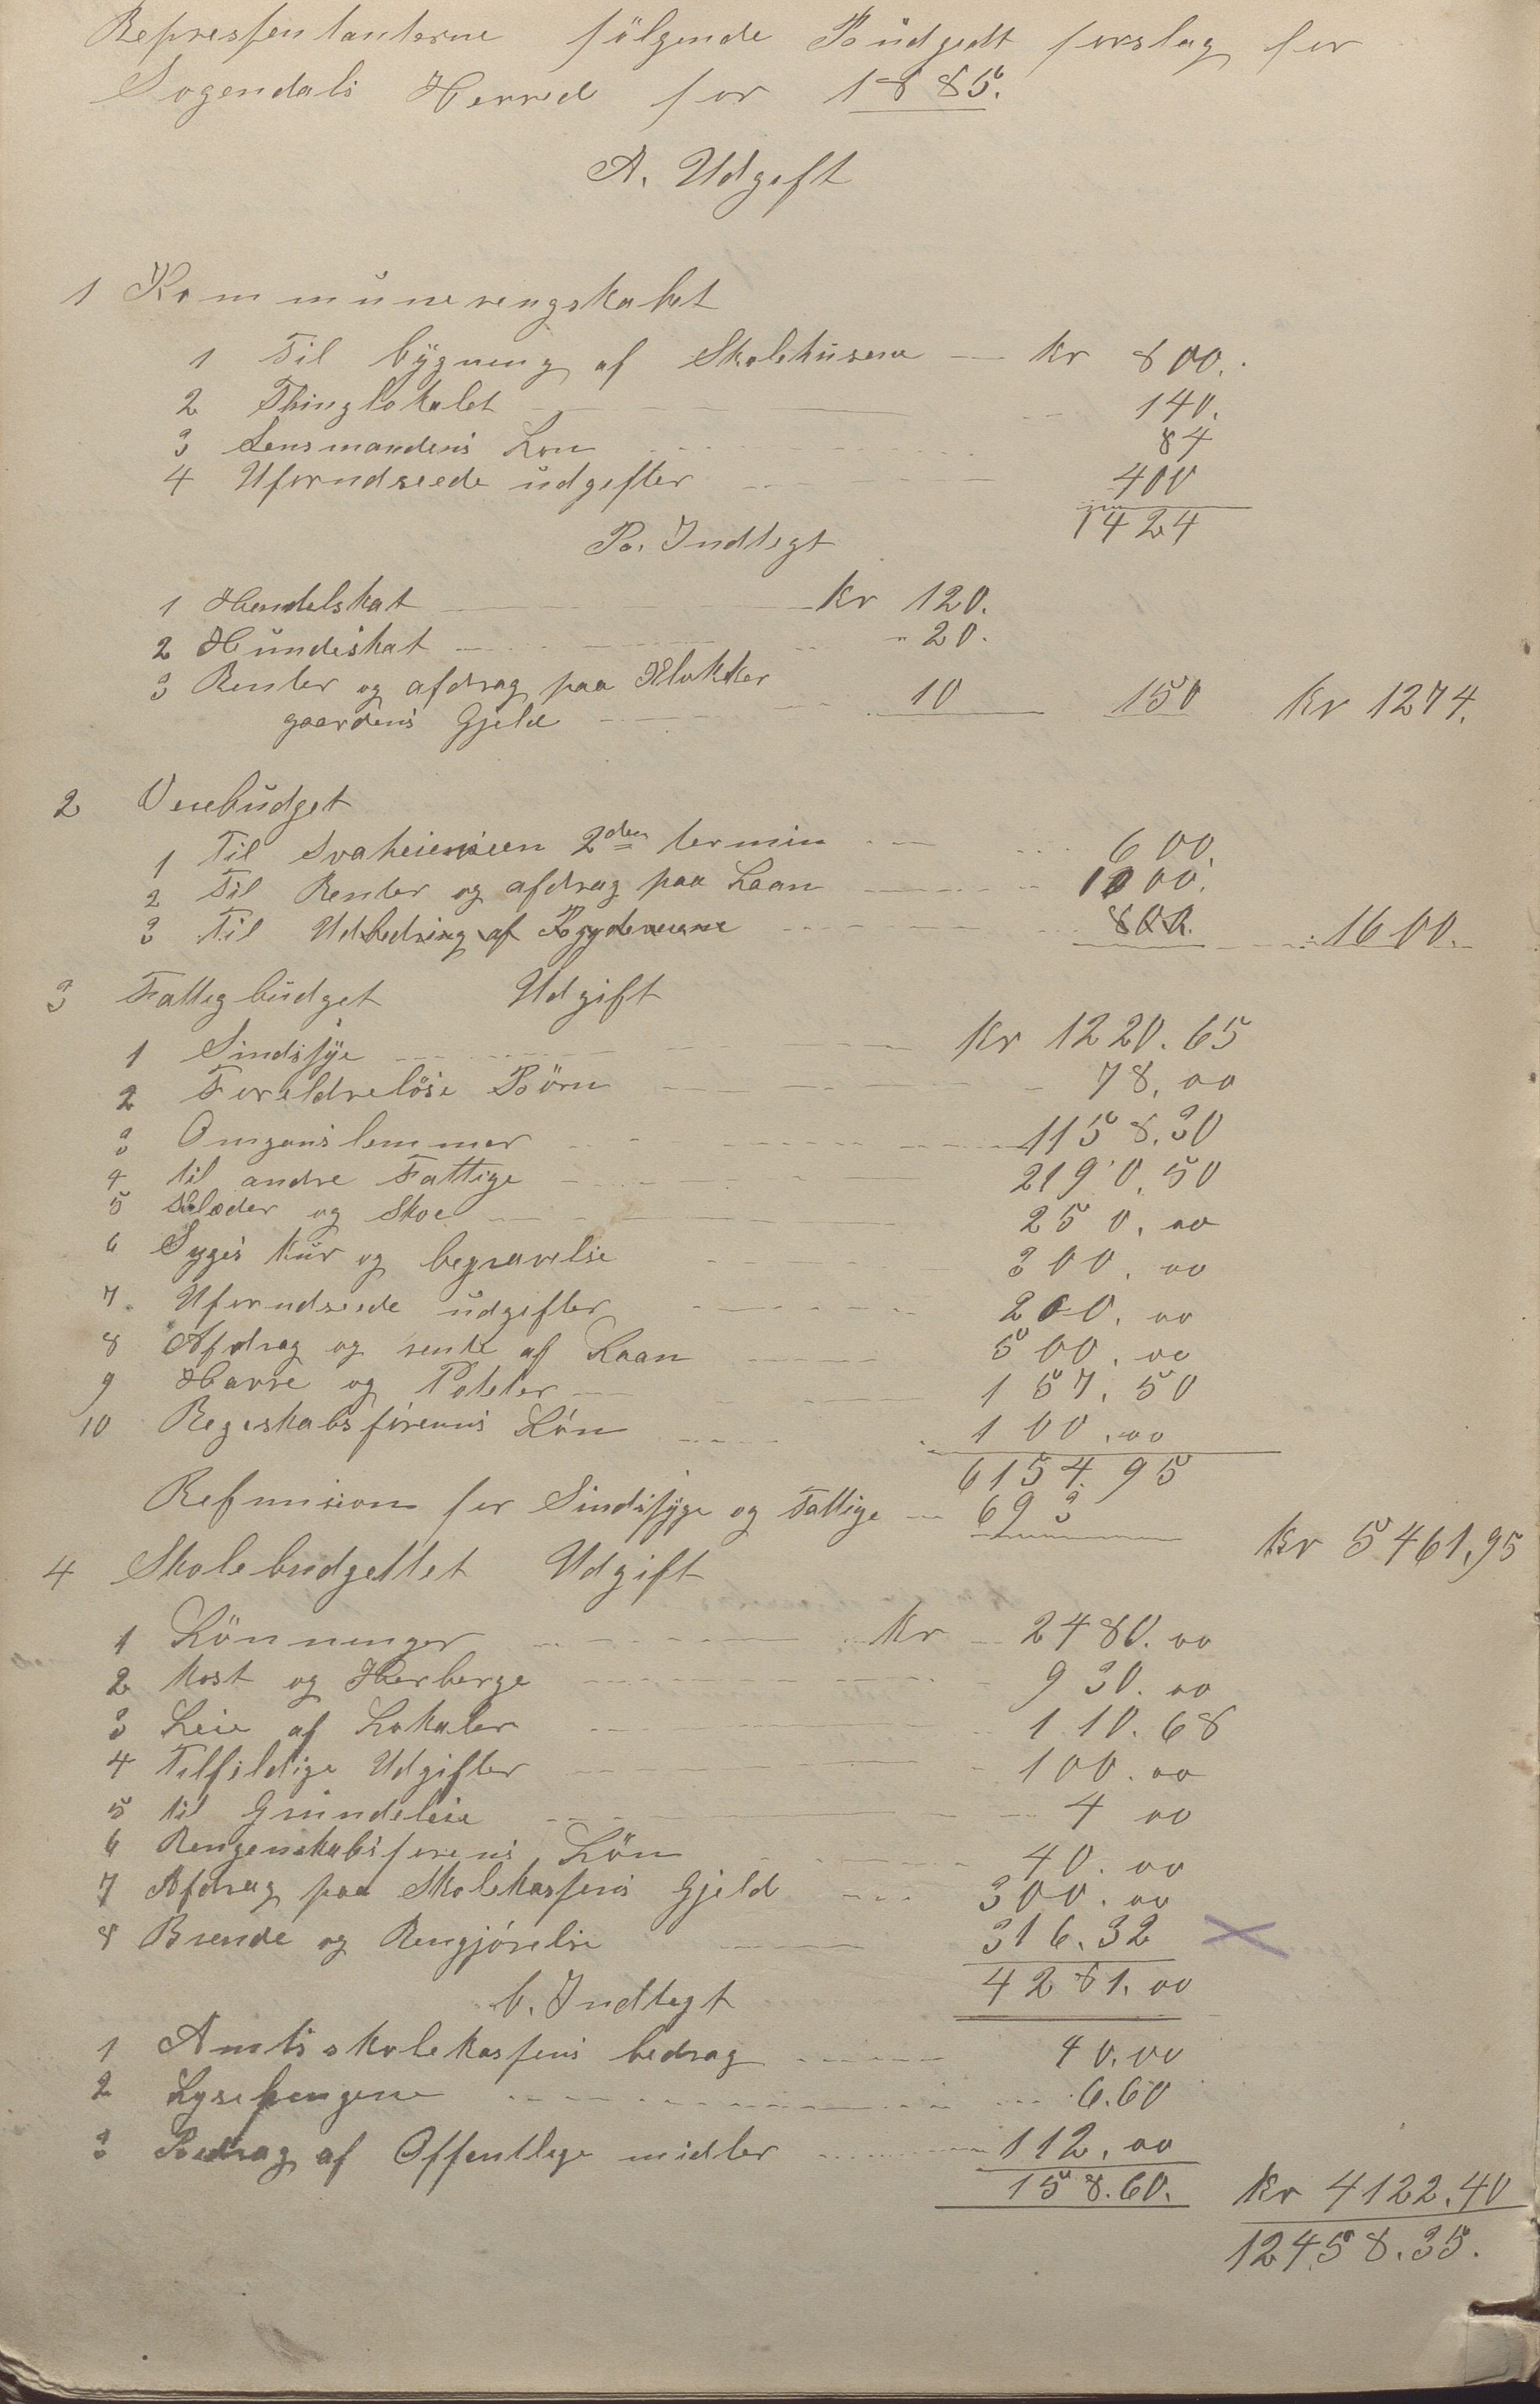 Repressentanterne fölgende Büdgedt forslag for
Sogendals Herred for 1885.
A. Udgift
1 Kommünerengskabet
1 Til bÿgning af Skolehüsene — Kr 800.
2 Thinglokalet 140.
3 Lensmandens Lon 84
4 Uforudseede üdgifter 400
1424
B. Indtegt
1 Handelskat Kr 120.
2 Hündeskat " 20.
3 Renter og afdrag paa Klokker
gaardens Gjeld 10 150 Kr 1274.
2 Veiebüdget
1 Til Svaheieveien 2den termin 600.
2 Til Renter og afdrag paa Laan 1000.
3 Til Udbedring af Bygdeveiene 800. 1600.
3 Fattigbüdget Udgift
1 Sindssÿge Kr 1220.65
2 Foreldrelöse Börn 78.00
3 Omganslemmer 1158.30
4 til andre Fattige 2190.50
5 Klæder og Skoe 250.00
6 Syges kür og begravelse 300.00
7 Uforudseede üdgifter 200.00
8 Afdrag og rente af Laan 500.00
9 Havre og Poteter 157.50
10 Regeskabsförerens Lön 100.00
6154.95
Refunsion for Sindssÿge og Fattige — 693 Kr 5461.95
4 Skolebudgettet Udgift
1 Lönnenger Kr 2480.00
2 Kost og Herberge 930.00
3 Leie af Lokaler 110.68
4 Tilfeldige Udgifter 100.00
5 til Gründeleie 4 00
6 Rengenskabsforerens Lön 40.00
7 Afdrag paa Skolekassens Gjeld 300.00
8 Brende og Rengjörelse 316.32
4281.00
b. Indtegt
1 Amtsskolekassens bedrag 40.00
2 Lysepengene 6.60
3 Bedrag af Offentlege midler 112.00
158.60. Kr 4122.40
12458.35.